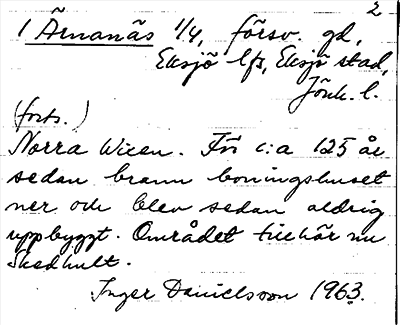 2
1 Ärnanäs 1/4, försv. gd,
Eksjö lfs, Eksjö stad,
Jönk. l.
(forts.)
Norra Wixen. För c:a 125 år
sedan brann boningshuset
ner och blev sedan aldrig
uppbyggt. Området tillhör nu
Skedhult.
Inger Danielsson 1963.